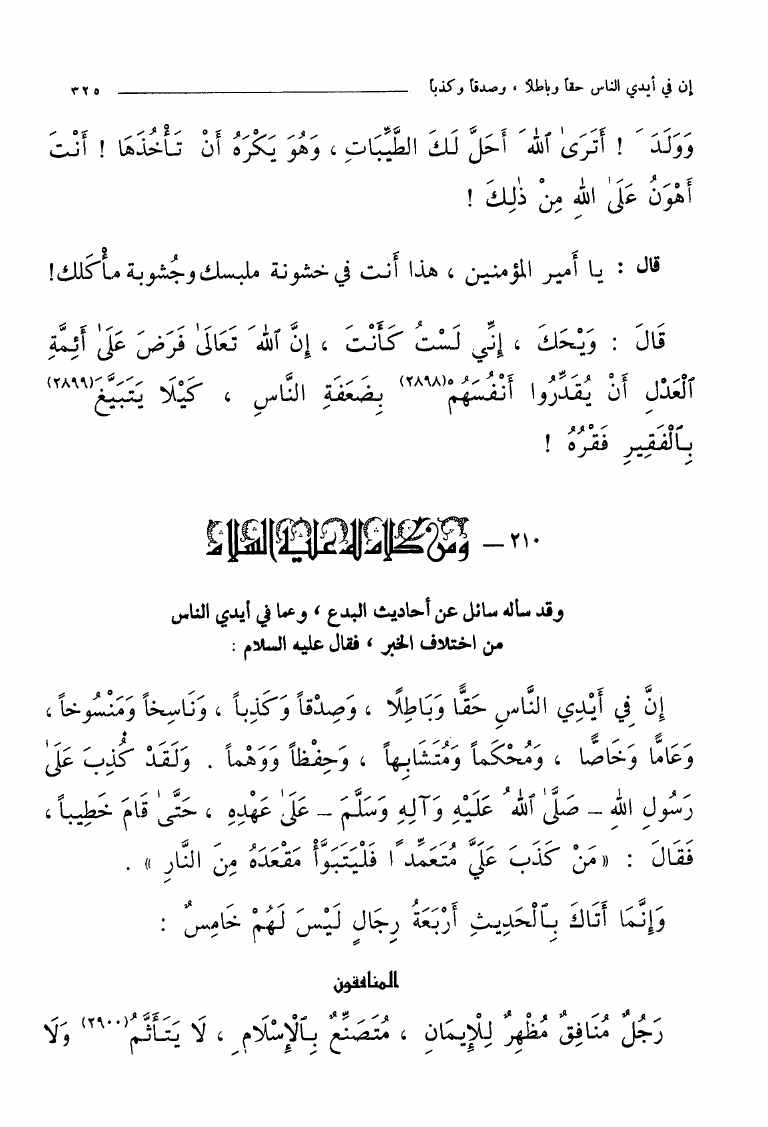 إن في أيدي الناس حقاً وباطلا ، وصدقاً وكذباً ٣٢٥
وَوَلَدَ ! أَتَرَىٰ ٱللهَ أَحَلَّ لَكَ الطَّيِّبَاتِ ، وَهُوَ يَكْرَهُ أَنْ تَأْخُذَهَا ! أَنْتَ
أَهْوَنُ عَلَىٰ اللهِ مِنْ ذٰلِكَ !
قال : يا أمير المؤمنين ، هذا أنت في خشونة ملبسك وجُشوبة مأْكَلك!
قَالَ : وَيْحَكَ ، إِنِّي لَسْتُ كَأَنْتَ ، إِنَّ ٱللهَ تَعَالَىٰ فَرَضَ عَلَىٰ أَئِمَّةِ
ٱلْعَدْلِ أَنْ يُقَدِّرُوا أَنْفُسَهُمْ(٢٨٩٨) بِضَعَفَةِ النَّاسِ ، كَيْلَا يَتَبَيَّغَ(٢٨٩٩)
بِٱلْفَقِيرِ فَقْرُهُ !
٢١٠ – ومن كلام له عليه السلام
وقد سأله سائل عن أحاديث البدع ، وعما في أيدي الناس
من اختلاف الخبر ، فقال عليه السلام :
إِنَّ فِي أَيْدِي النَّاسِ حَقًّا وَبَاطِلًا ، وَصِدْقاً وَكَذِباً ، وَنَاسِخاً وَمَنْسُوخاً ،
وَعَامًّا وَخَاصًّا ، وَمُحْكَماً وَمُتَشَابِهاً ، وَحِفْظاً وَوَهْماً . وَلَقَدْ كُذِبَ عَلَىٰ
رَسُولِ اللهِ – صَلَّىٰ ٱللهُ عَلَيْهِ وَآلِهِ وَسَلَّمَ – عَلَىٰ عَهْدِهِ ، حَتَّىٰ قَامَ خَطِيباً ،
فَقَالَ : «مَنْ كَذَبَ عَلَيَّ مُتَعَمِّدًا فَلْيَتَبَوَّأْ مَقْعَدَهُ مِنَ النَّارِ » .
وَإِنَّمَا أَتَاكَ بِٱلْحَدِيثِ أَرْبَعَةُ رِجَالٍ لَيْسَ لَهُمْ خَامِسٌ :
المنافقون
رَجُلٌ مُنَافِقٌ مُظْهِرٌ لِلْإِيمَانِ ، مُتَصَنِّعٌ بِٱلْإِسْلَامِ ، لَا يَتَأَثَّمُ(٢٩٠٠) وَلَا